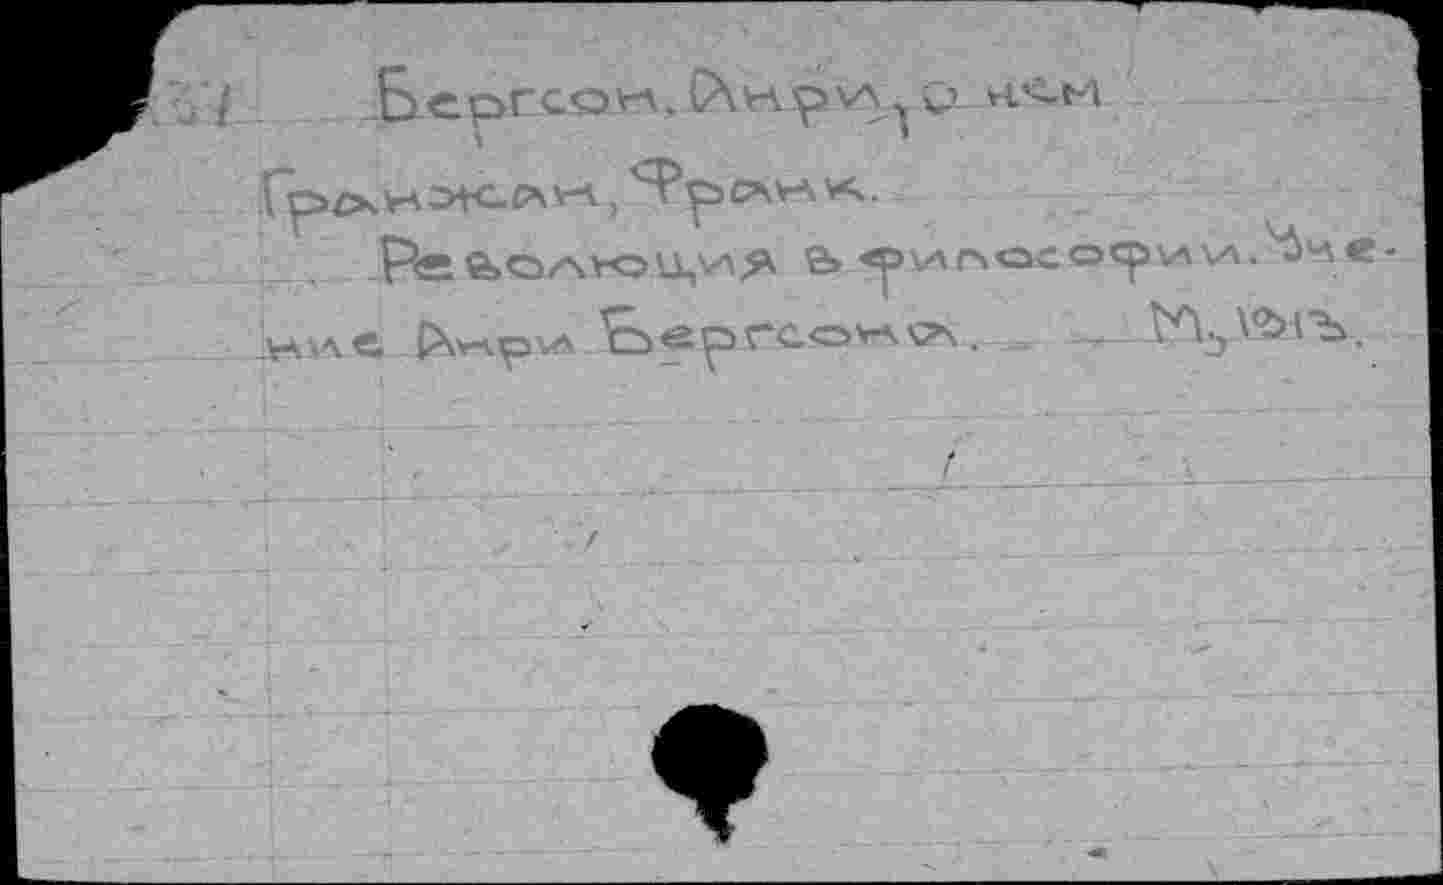 Бергсон, Анри, о нем
Гранжан, Франк.
Революция в философии. Уче-
ние Анри Бергсона. М., 1913.